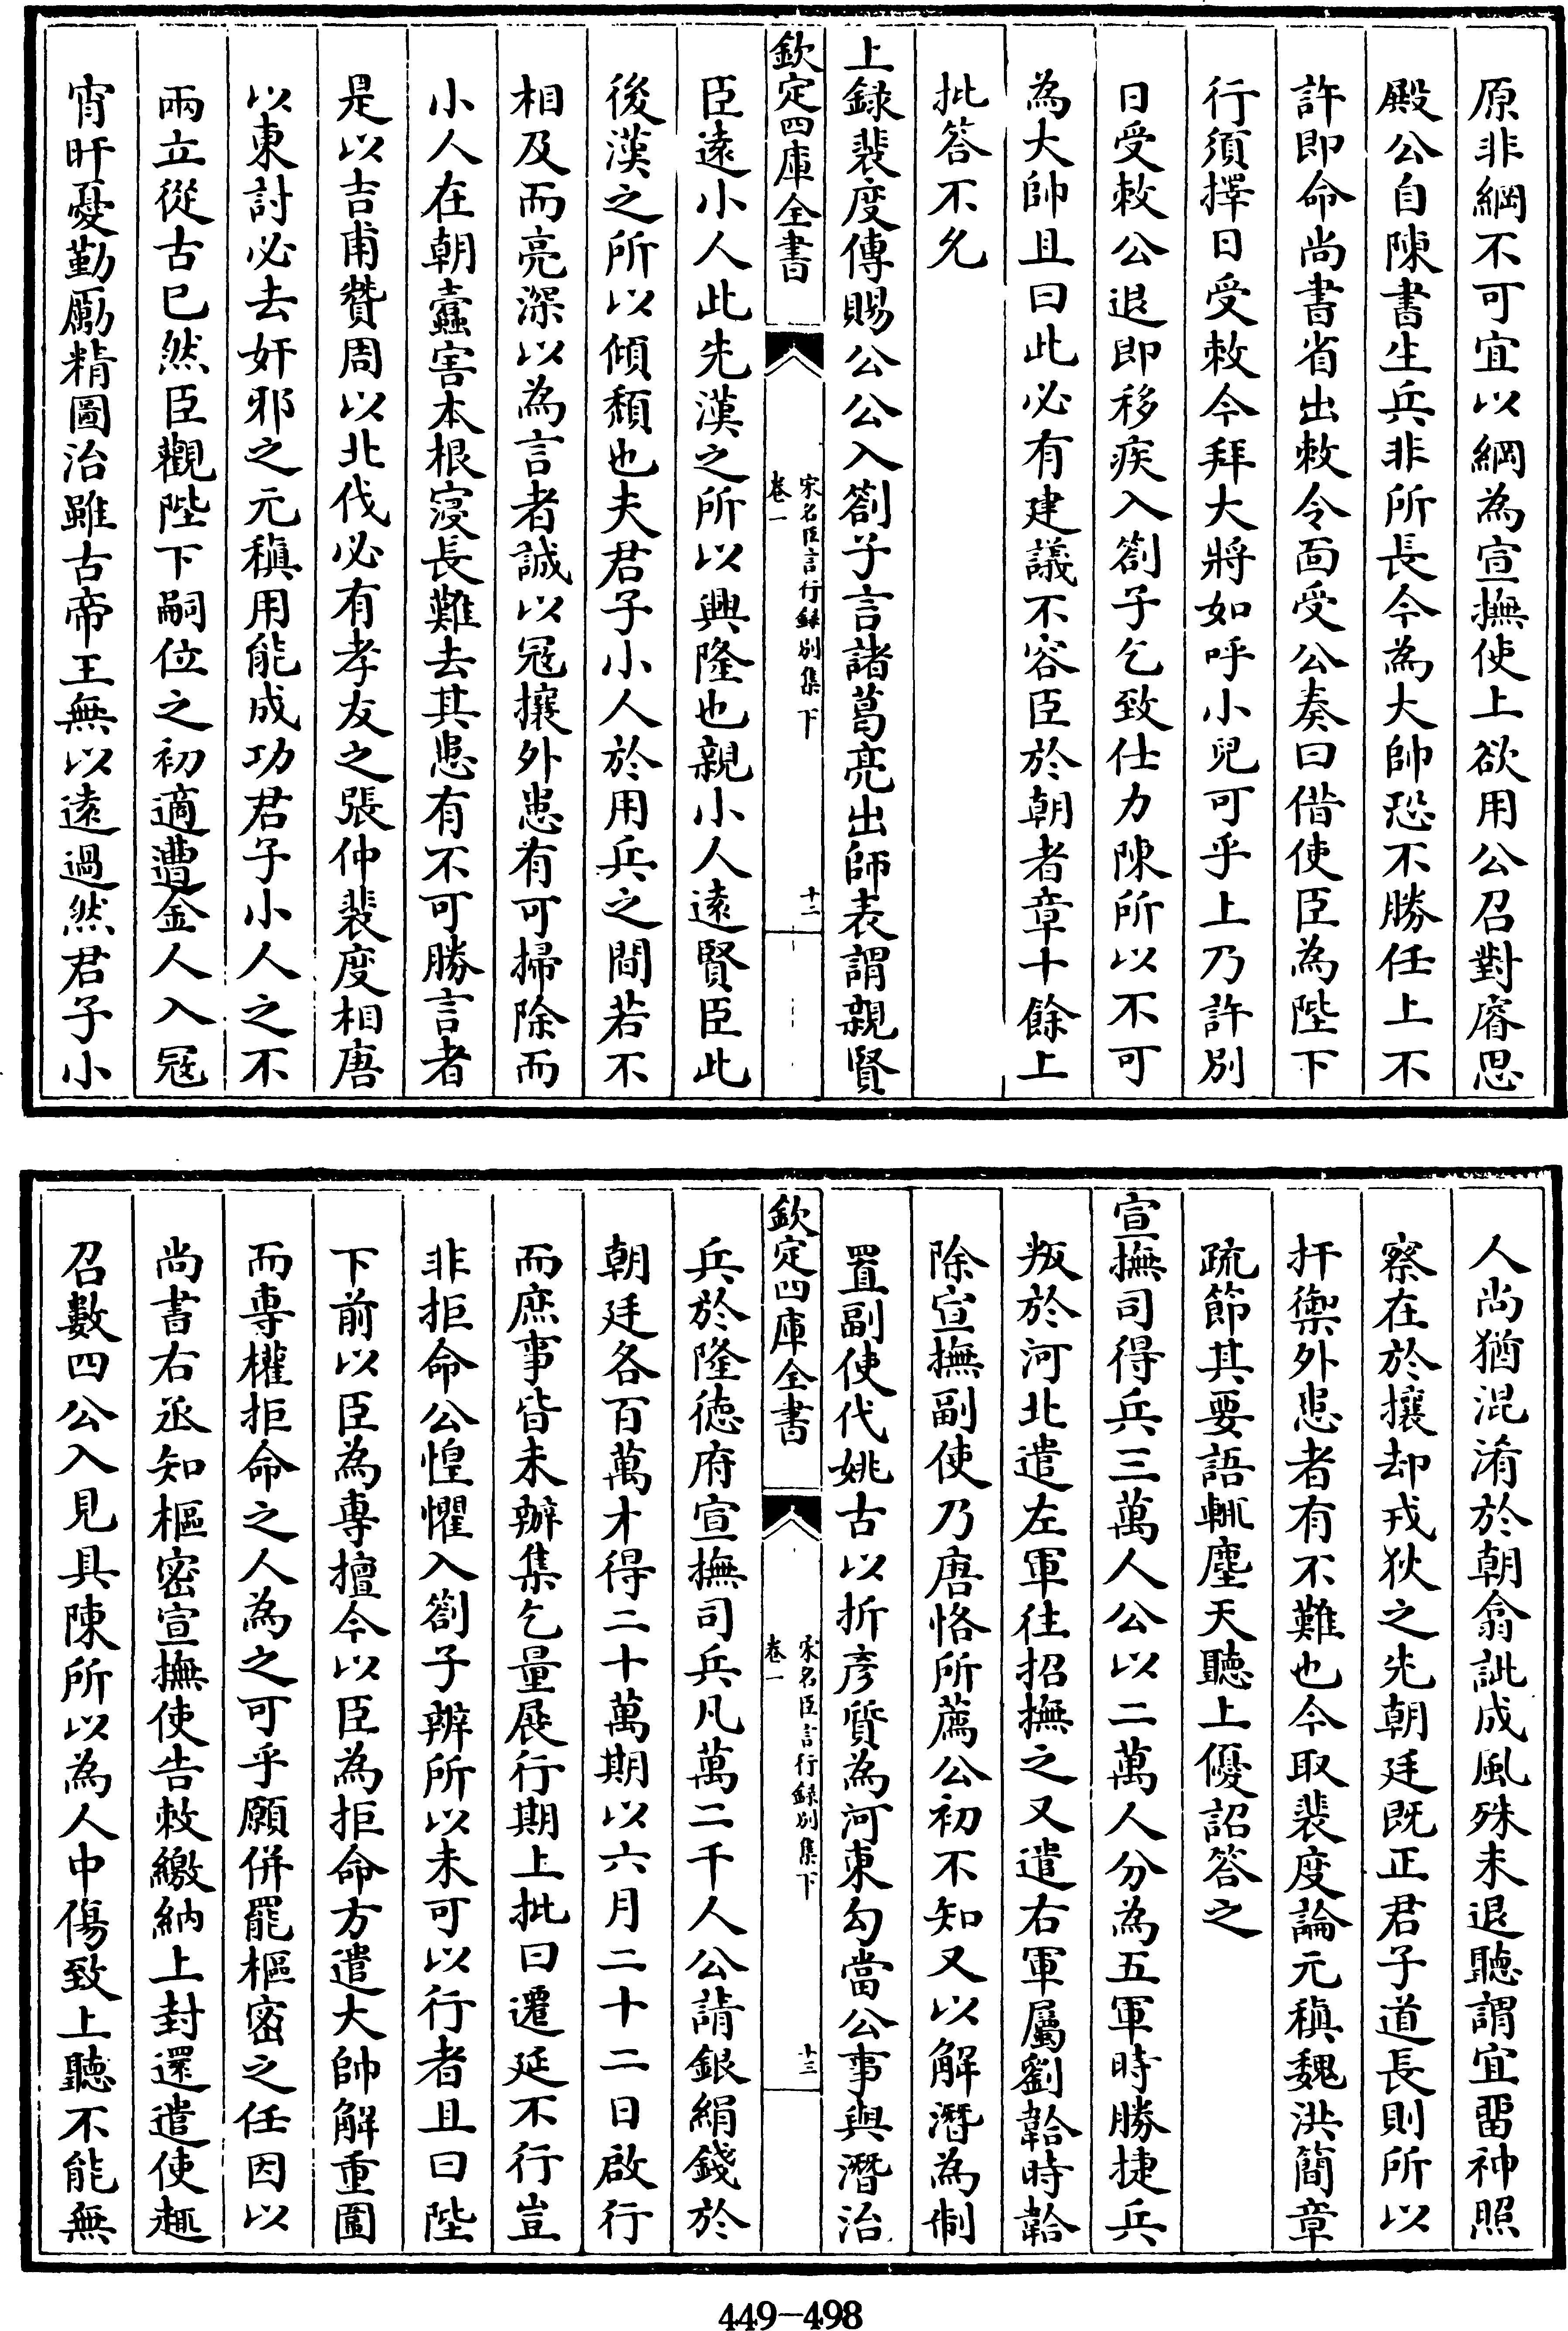 原非綱不可宜以綱為宣撫使上欲用公召對睿思
殿公自陳書生兵非所長今為大帥恐不勝任上不
許即命尚書省出敕令面受公奏曰借使臣為陛下
行須擇日受敕今拜大將如呼小兒可乎上乃許別
日受敕公退即移疾入劄子乞致仕力陳所以不可
為大帥且曰此必有建議不容臣於朝者章十餘上
批答不允
上錄裴度傳賜公公入劄子言諸葛亮出師表謂親賢
欽定四庫全書
宋名臣言行錄別集下
卷一
十二
臣遠小人此先漢之所以興隆也親小人遠賢臣此
後漢之所以傾頹也夫君子小人於用兵之間若不
相及而亮深以為言者誠以寇攘外患有可掃除而
小人在朝蠹害本根寖長難去其患有不可勝言者
是以吉甫贊周以北伐必有孝友之張仲裴度相唐
以東討必去奸邪之元稹用能成功君子小人之不
兩立從古已然臣觀陛下嗣位之初適遭金人入寇
宵旰憂勤勵精圖治雖古帝王無以遠過然君子小
人尚猶混淆於朝翕訿成風殊未退聽謂宜留神照
察在於攘却戎狄之先朝廷既正君子道長則所以
扞禦外患者有不難也今取裴度論元稹魏洪簡章
疏節其要語輒塵天聽上優詔答之
宣撫司得兵三萬人公以二萬人分為五軍時勝捷兵
叛於河北遣左軍往招撫之又遣右軍屬劉韐時韐
除宣撫副使乃唐恪所薦公初不知又以解潛為制
置副使代姚古以折彥質為河東勾當公事與潛治
欽定四庫全書
宋名臣言行錄別集下
卷一
十三
兵於隆德府宣撫司兵凡萬二千人公請銀絹錢於
朝廷各百萬才得二十萬期以六月二十二日啟行
而庶事皆未辦集乞量展行期上批曰遷延不行豈
非拒命公惶懼入劄子辨所以未可以行者且曰陛
下前以臣為專擅今以臣為拒命方遣大帥解重圍
而專權拒命之人為之可乎願併罷樞密之任因以
尚書右丞知樞密宣撫使告敕繳納上封還遣使趣
召數四公入見具陳所以為人中傷致上聽不能無
449-498